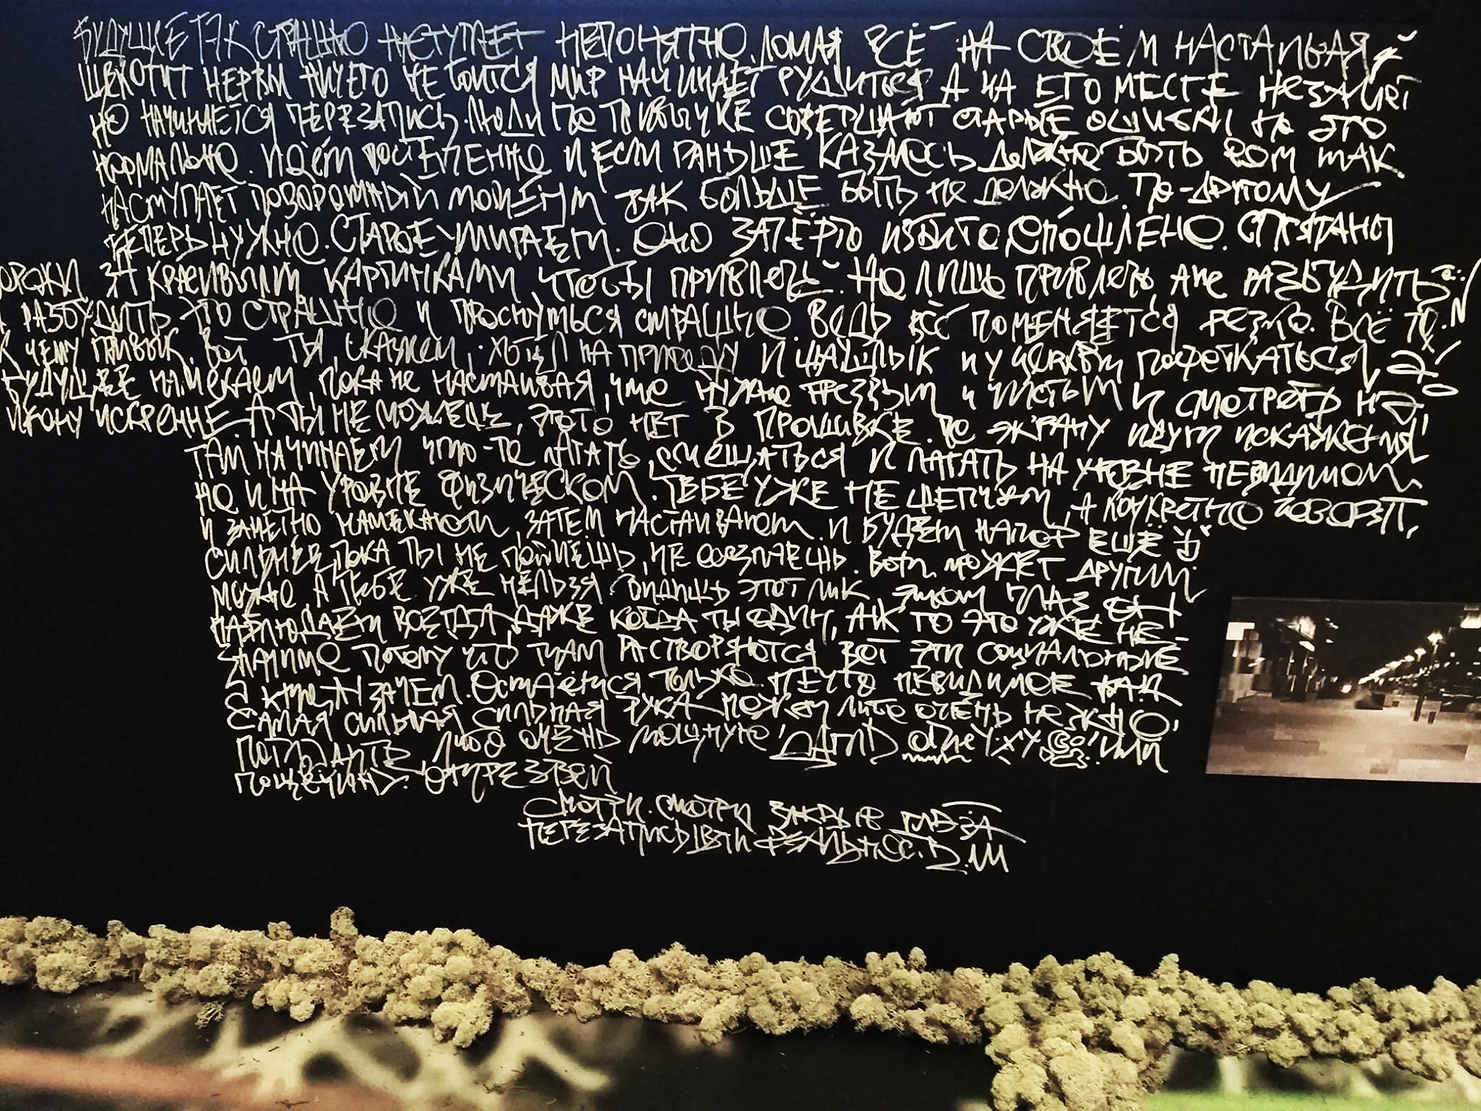 БУДУЩЕЕ ТАК СТРАШНО НАСТУПАЕТ НЕПОНЯТНО. ЛОМАЯ ВСЁ НА СВОЁМ НАСТАИВАЯ
ЩЕКОТИТ НЕРВЫ НИЧЕГО НЕ БОИТСЯ МИР НАЧИНАЕТ РУШИТЬСЯ А НА ЕГО МЕСТЕ НЕЗАМЕТ
НО НАЧИНАЕТСЯ ПЕРЕЗАПИСЬ. ЛЮДИ ПО ПРИВЫЧКЕ СОВЕРШАЮТ СТАРЫЕ ОШИБКИ НО ЭТО
НОРМАЛЬНО. ИДЁМ ПОСТЕПЕННО И ЕСЛИ РАНЬШЕ КАЗАЛОСЬ ДОЛЖНО БЫТЬ ВОТ ТАК
НАСТУПАЕТ ПОВОРОТНЫЙ МОМЕНТ ТАК БОЛЬШЕ БЫТЬ НЕ ДОЛЖНО. ПО-ДРУГОМУ
ТЕПЕРЬ НУЖНО. СТАРОЕ УМИРАЕТ. ОНО ЗАТЁРТО ИЗБИТО ОПОШЛЕНО. СПРЯТАНО
ЗА КРАСИВЫМИ КАРТИНКАМИ ЧТОБЫ ПРИВЛЕЧЬ. НО ЛИШЬ ПРИВЛЕЧЬ А НЕ РАЗБУДИТЬ
РАЗБУДИТЬ ЭТО СТРАШНО И ПРОСНУТЬСЯ СТРАШНО. ВЕДЬ ВСЁ ПОМЕНЯЕТСЯ РЕЗКО. ВСЁ ТО
К ЧЕМУ ПРИВЫК. ВОТ ТЫ, СКАЖЕМ, ХОТЕЛ НА ПРИРОДУ И ШАШЛЫК И У ЦЕРКВИ ПОФОТКАТЬСЯ, А
БУДУЩЕЕ НАМЕКАЕТ, ПОКА НЕ НАСТАИВАЯ, ЧТО НУЖНО ТРЕЗВЫМ И ЧИСТЫМ И СМОТРЕТЬ НА
ИКОНУ ИСКРЕННЕ. А ТЫ НЕ МОЖЕШЬ, ЭТОГО НЕТ В ПРОШИВКЕ. ПО ЭКРАНУ ИДУТ ИСКАЖЕНИЯ
ТАМ НАЧИНАЕТ ЧТО-ТО ЛАГАТЬ, СМЕЩАТЬСЯ И ЛАГАТЬ НА УРОВНЕ НЕВИДИМОМ,
НО И НА УРОВНЕ ФИЗИЧЕСКОМ. ТЕБЕ УЖЕ НЕ ШЕПЧУТ, А КОНКРЕТНО ГОВОРЯТ,
И ЗАМЕТНО НАМЕКАЮТ, ЗАТЕМ НАСТАИВАЮТ. И БУДЕТ НАПОР ЕЩЁ
СИЛЬНЕЕ, ПОКА ТЫ НЕ ПОЙМЁШЬ, НЕ ОСОЗНАЕШЬ. ВОТ МОЖЕТ ДРУГИМ
МОЖНО А ТЕБЕ УЖЕ НЕЛЬЗЯ. ВИДИШЬ ЭТОТ ЛИК ЭТОТ ГЛАЗ ОН
НАБЛЮДАЕТ ВСЕГДА, ДАЖЕ КОГДА ТЫ ОДИН, А К ТО ЭТО УЖЕ НЕ
ЗНАЧИМО ПОТОМУ ЧТО ТАМ РАСТВОРЯЮТСЯ ВОТ ЭТИ СОЦИАЛЬНЫЕ
ЗАЧЕМ. ОСТАЁТСЯ ТОЛЬКО НЕЧТО НЕВИДИМОЕ КАК
САМАЯ СИЛЬНАЯ СИЛЬНАЯ РУКА МОЖЕТ ЛИБО ОЧЕНЬ НЕЖНО
ПОГЛАДИТЬ ЛИБО ОЧЕНЬ МОЩНУЮ ДАТЬ ИЛИ
ПОЩЁЧИНУ. ОТРЕЗВЕЙ
СМОТРИ. СМОТРИ ЗАКРЫВ ГЛАЗА
ПЕРЕЗАПИСЫВАЙ РЕАЛЬНОС.